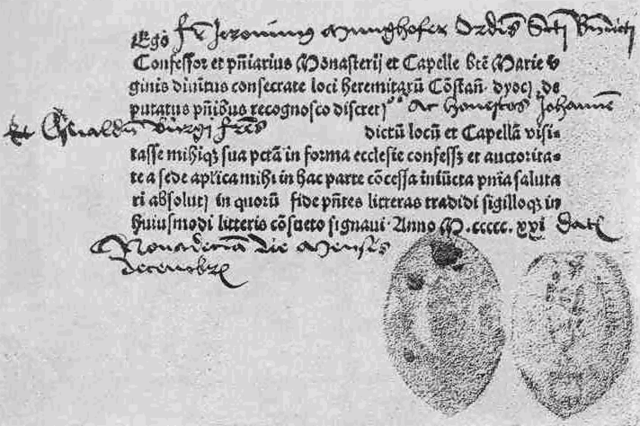 Ego fr̄ Jeronimus Munghofer Ordis̄ Scti Bn̄dicti
Confessor et pn̄iarius Monasterij et Capelle btē Marie v
ginis diuītus consecrate loci heremitarū Cōstan̄. dyoc̄. de
putatus pn̄ibus recognosco discretos Ac honestos Johannē
et frēs dictū locū et Capellā visi-
tasse mihiqꝫ sua pctā in forma ecclesie confessos et auctorita-
te a sede aplica mihi in hac parte cōcessa iniūcta pn̄ia saluta
ri absolui in quorū fide pn̄tes litteras tradidi sigilloqꝫ in
huiusmodi litteris cōsueto signaui. Anno M.ccccc.xxi Datꝫ
Die Mensis
decembrꝭ